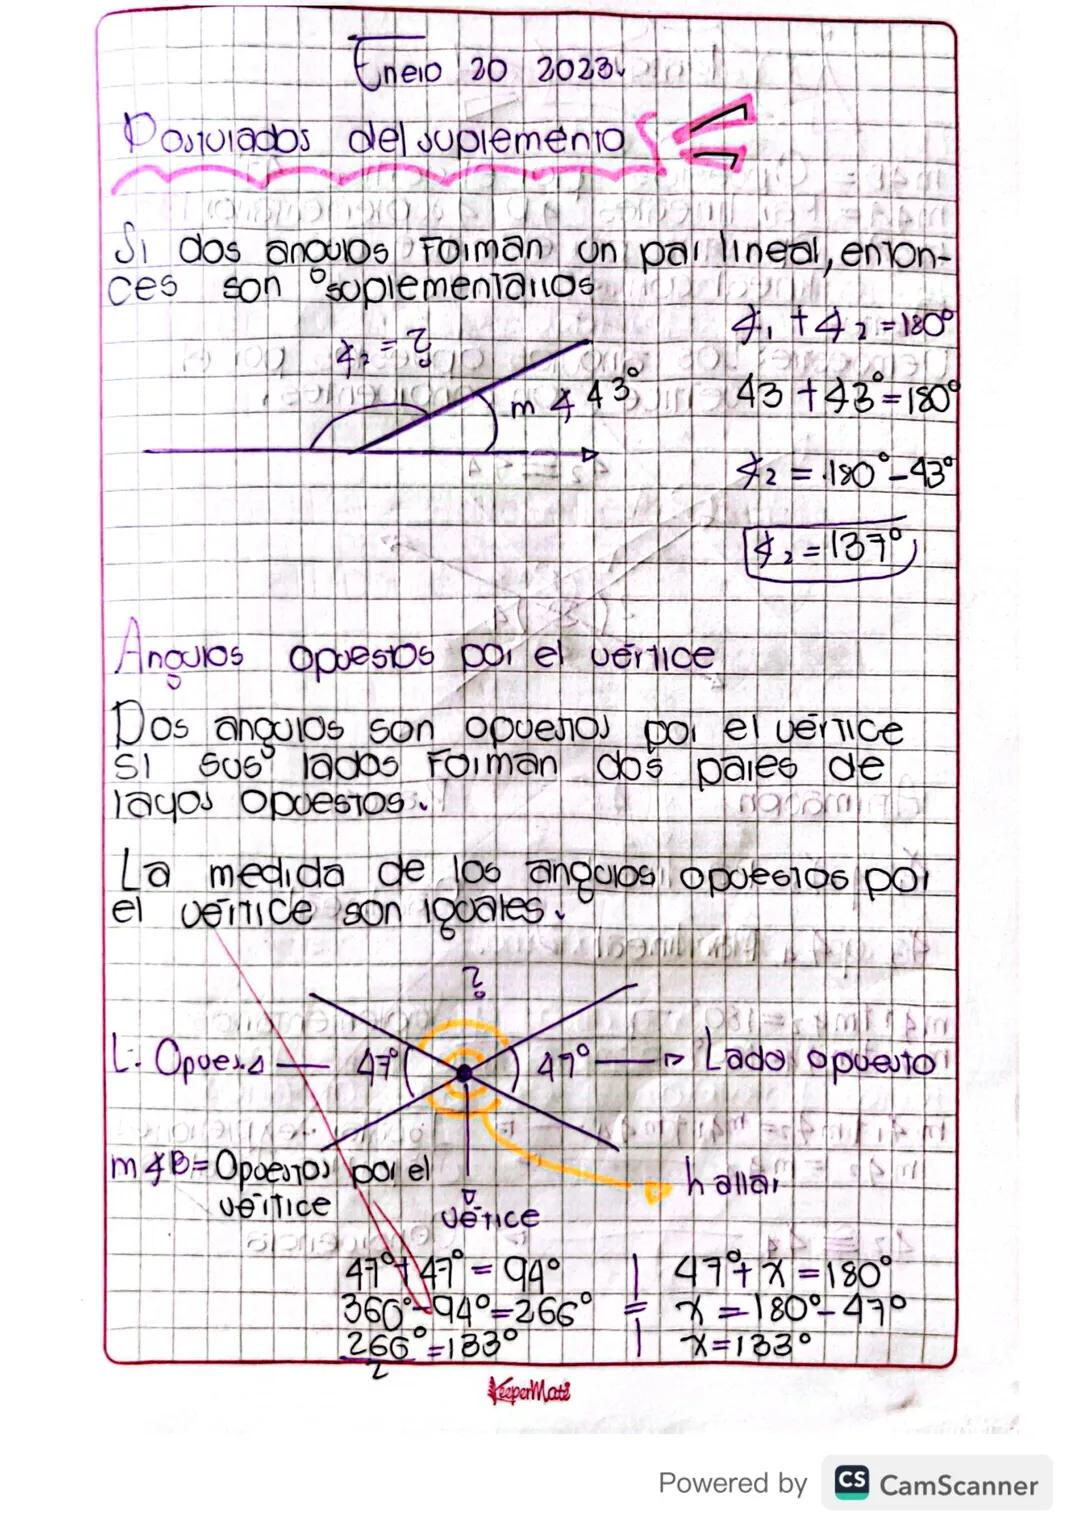 Enero 20 2023.
Postulados del suplemento
Si dos angulos Forman un par lineal, enton-
ces son suplementarios
∡2 = ?
m ∡ 43°
∡1 + ∡2 = 180°
43 + ∡3° = 180°
∡2 = 180° - 43°
∡2 = 137°
Angulos opuestos por el vértice
Dos angulos son opuestos por el vértice
si sus lados Forman dos pares de
rayos opuestos.
La medida de los angulos opuestos por
el vertice son iguales.
?
47°
47°
Lado opuesto
m∡B = Opuestos por el
vértice
vértice
hallar
47° + 47° = 94°
360° - 94° = 266°
266° = 133°
2
47° + x = 180°
x = 180° - 47°
x = 133°
KeeperMate
Powered by CS CamScanner